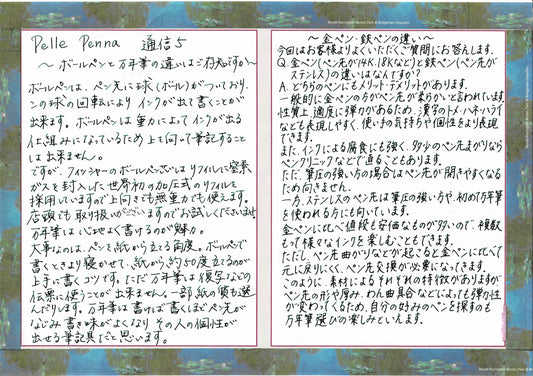 Pelle Penna 通信5
〜ボールペンと万年筆の違いはご存知ですか〜
ボールペンは、ペン先に球(ボール)がついており、
この球の回転によりインクが出て書くことが
出来ます。ボールペンは重力によってインクが出る
仕組みになっているため上を向って筆記すること
は出来ません。
ですが、フィッシャーのボールペンはリフィルに窒素
ガスを封入した世界初の加圧式のリフィルを
採用していますので上向きでも無重力でも使えます。
店頭でも取り扱いがございますのでお試しくださいませ
万年筆は心地よく書けるのが魅力。
大事なのは、ペンを紙から立てる角度。ボールペンで
書くときより寝かせて、紙から約50度立てるのが
上手に書くコツです。ただ万年筆は複写などの
伝票に使うことが出来ません。一部紙の質も選
んだりします。万年筆は書けば書くほどペン先が
なじみ書き味がよくなり その人の個性が
出せる筆記具だと思います。
〜金ペン・鉄ペンの違い〜
今回はお客様よりよくいただくご質問にお答えします。
Q.金ペン(ペン先が14K.18Kなど)と鉄ペン(ペン先が
ステンレス)の違いはなんですか?
A.どちらのペンにもメリット・デメリットがあります。
一般的に金ペンの方がペン先が柔らかいと言われています。
性質上、適度に弾力があるため、漢字のトメ・ハネ・ハライ
なども表現しやすく、使い手の気持ちや個性をより表現
できます。
また、インクによる腐食にも強く、多少のペン先まがりなら
ペンクリニックなどで直ることもあります。
ただ、筆圧の強い方の場合はペン先が開きやすくなる
ため向きません。
一方、ステンレスのペン先は筆圧の強い方や、初めて万年筆
を使われる方にも向いています。
金ペンに比べ値段も安価なものが多いので、複数
もって様々なインクを楽しむこともできます。
ただし、ペン先曲がりなどが起こると金ペンに比べて
元に戻りにくく、ペン先交換が必要になってきます。
このように、素材によるそれぞれの特徴がありますが
ペン先の形や厚み、わん曲具合などによっても弾力性
が変わってくるため、自分の好みのペンを探すのも
万年筆選びの楽しみといえます。